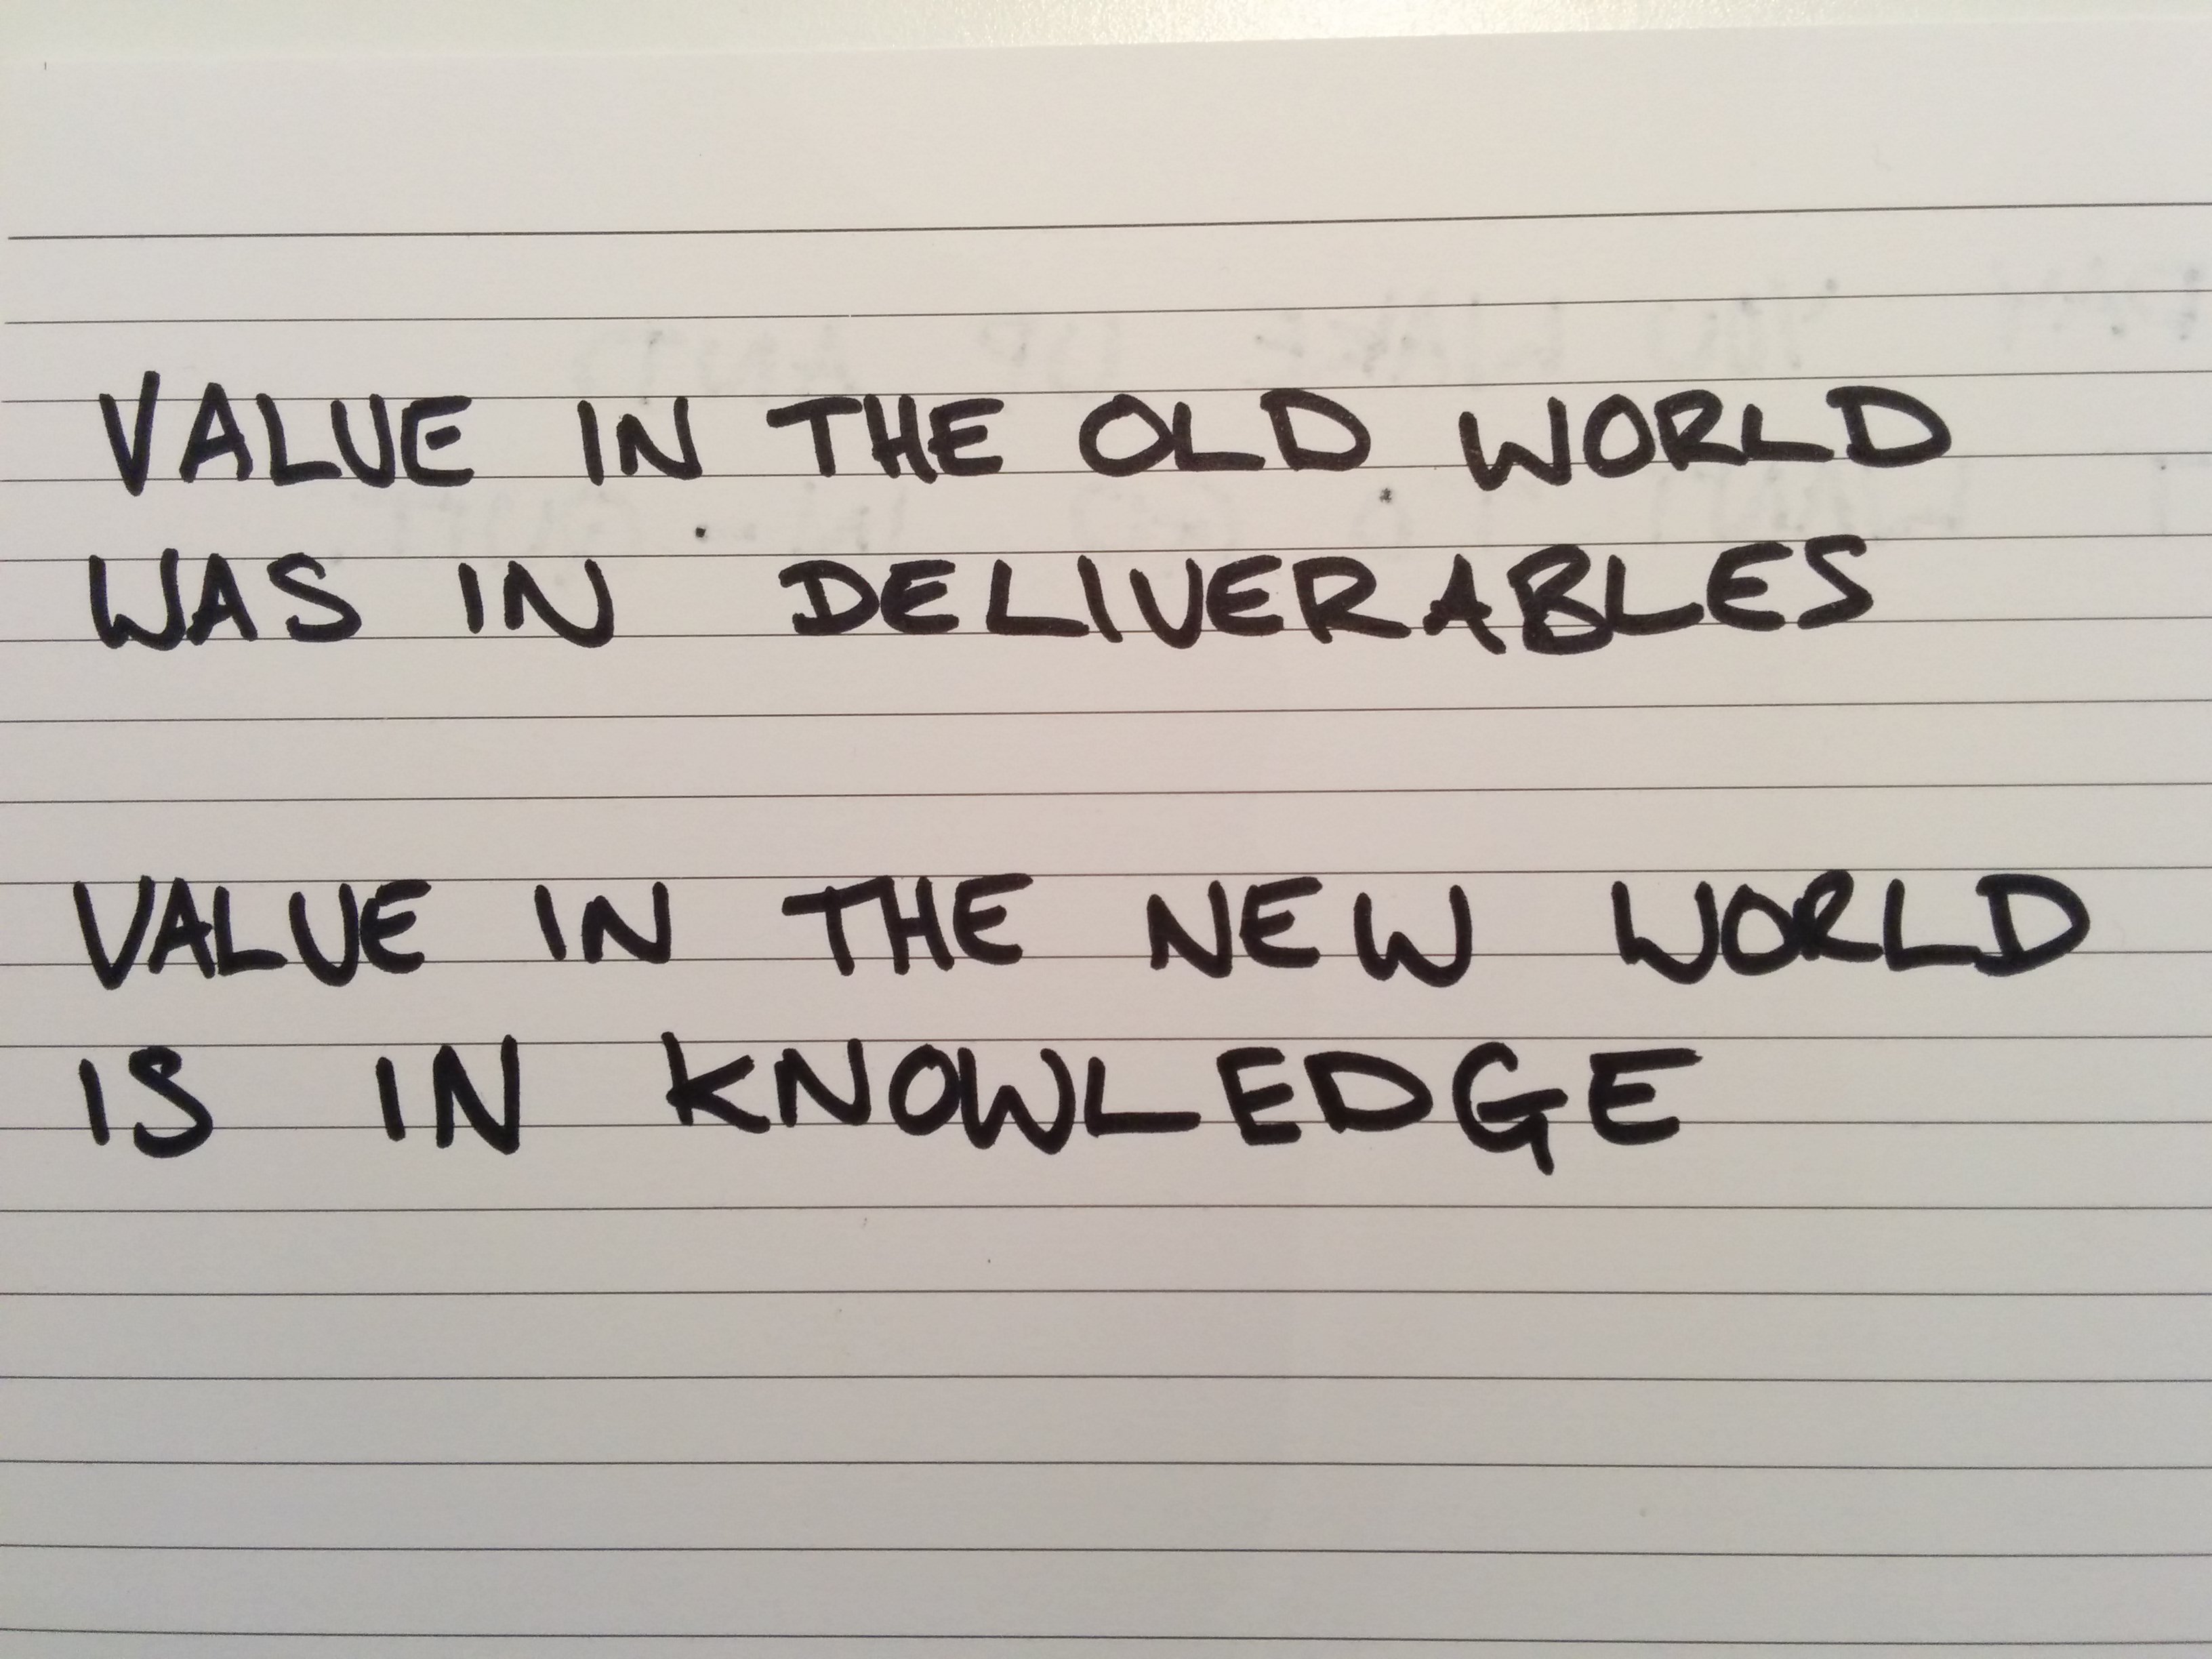 VALUE IN THE OLD WORLD
WAS IN DELIVERABLES
VALUE IN THE NEW WORLD
IS IN KNOWLEDGE